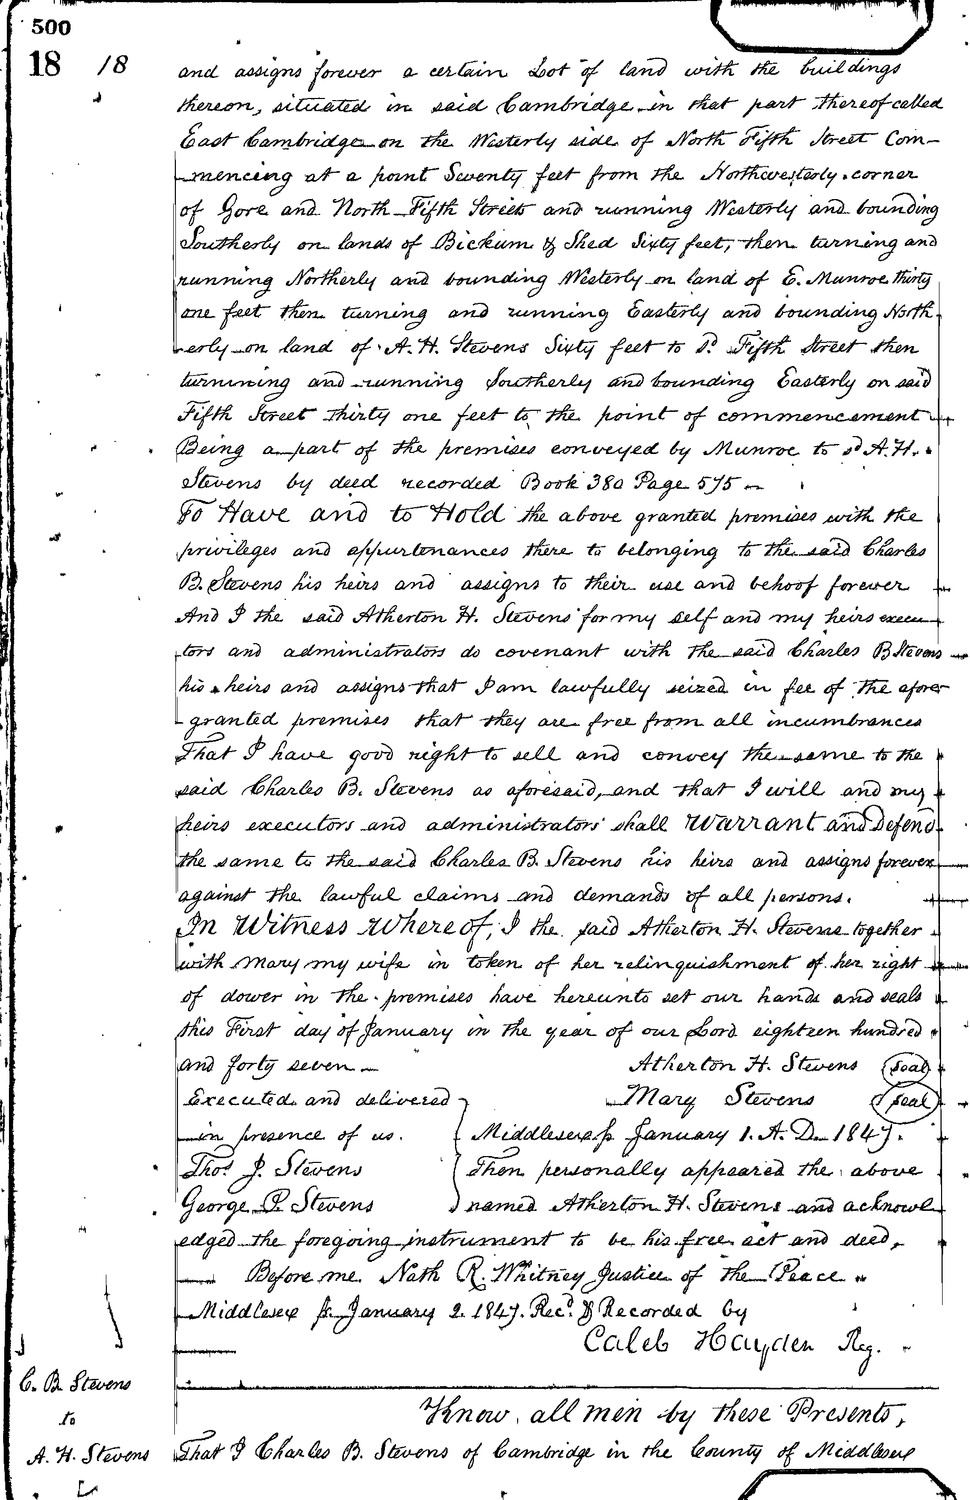 500
18 18
and assigns forever a certain Lot of land with the buildings
thereon, situated in said Cambridge in that part thereof called
East Cambridge on the Westerly side of North Fifth Street Com-
-mencing at a point Seventy feet from the Northwesterly corner
of Gore and North Fifth Streets and running Westerly and bounding
Southerly on lands of Bickum & Shed Sixty feet, then turning and
running Northerly and bounding Westerly on land of E. Munroe thirty
one feet then turning and running Easterly and bounding North
-erly on land of A. H. Stevens Sixty feet to sd. Fifth Street then
turnning and running Southerly and bounding Easterly on said
Fifth Street thirty one feet to the point of commencement
Being a part of the premises conveyed by Munroe to sd A. H.
Stevens by deed recorded Book 380 Page 575
To Have and to Hold the above granted premises with the
privileges and appurtenances there to belonging to the said Charles
B. Stevens his heirs and assigns to their use and behoof forever
And I the said Atherton H. Stevens for my self and my heirs execu-
tors and administrators do covenant with the said Charles B Stevens
his heirs and assigns that I am lawfully seized in fee of the afore
-granted premises that they are free from all incumbrances
That I have good right to sell and convey the same to the
said Charles B. Stevens as aforesaid, and that I will and my
heirs executors and administrators shall Warrant and Defend
the same to the said Charles B. Stevens his heirs and assigns forever
against the lawful claims and demands of all persons.
In Witness Whereof, I the said Atherton H. Stevens together
with Mary my wife in token of her relinquishment of her right
of dower in the premises have hereunto set our hands and seals
this First day of January in the year of our Lord eighteen hundred
and forty seven Atherton H. Stevens (seal)
Executed and delivered Mary Stevens (seal)
in presence of us. Middlesex ss January 1. A. D. 1847.
Thos J. Stevens Then personally appeared the above
George P. Stevens named Atherton H. Stevens and acknowl
edged the foregoing instrument to be his free act and deed,
Before me Nath R. Whitney Justice of the Peace
Middlesex ss. January 2. 1847. Recd & Recorded by
Caleb Hayden Reg.
C. B. Stevens
to
A. H. Stevens
Know all men by these Presents,
That I Charles B. Stevens of Cambridge in the County of Middlesex